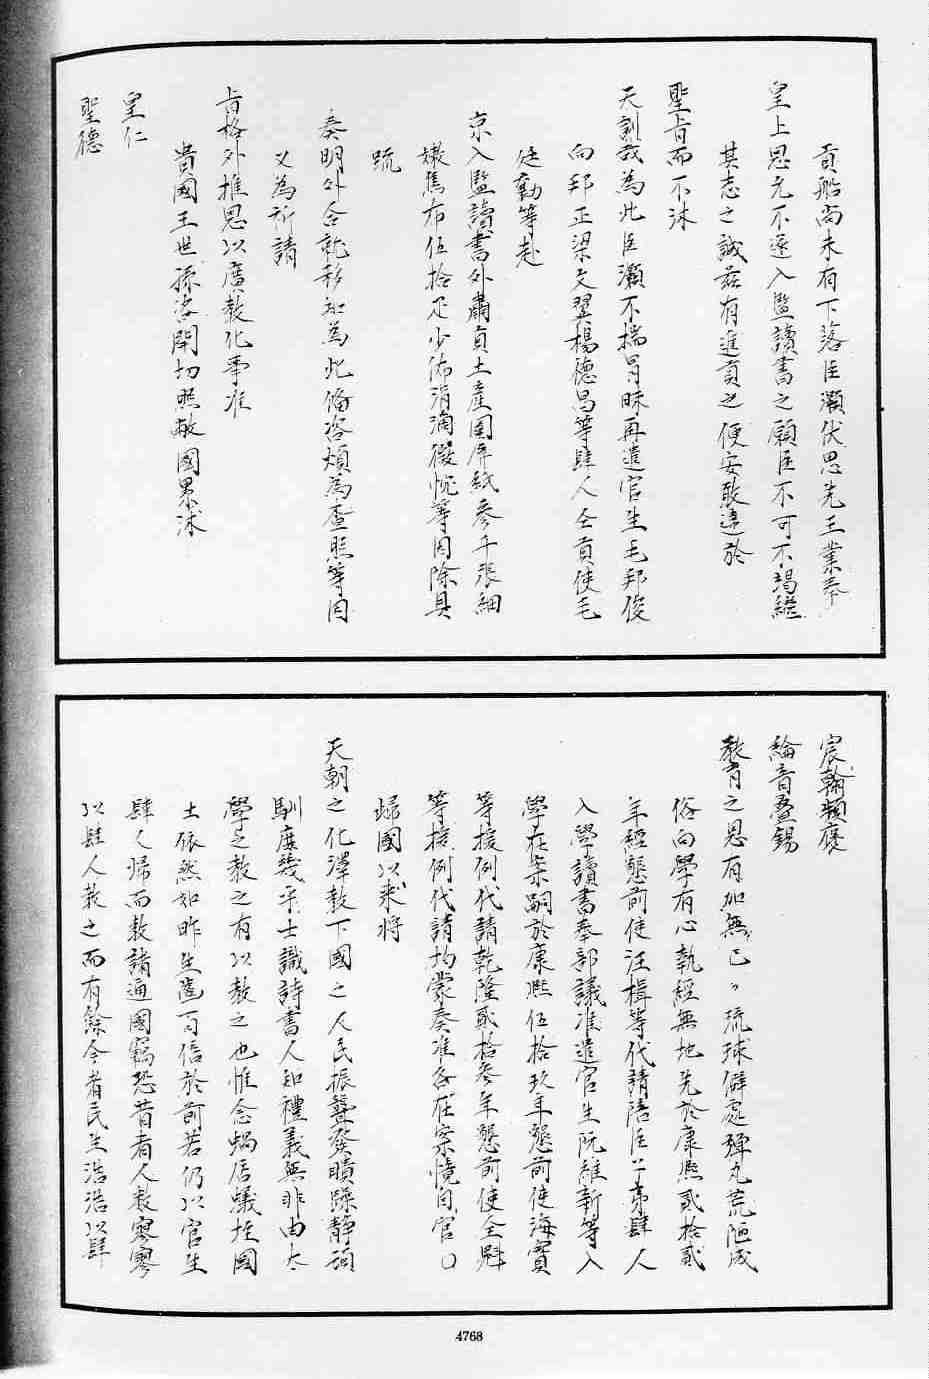 貢船尚未有下落臣灝伏思先王業奉
皇上恩允不遂入監讀書之願臣不可不竭繼
其志之誠茲有進貢之便安敢違於
聖旨而不沐
天訓哉為此臣灝不揣冒昧再遣官生毛邦俊
向邦正梁文翼楊德昌等肆人仝貢使毛
廷勷等赴
京入監讀書外肅貢土產圍屏紙參千張細
嫩蕉布伍拾疋少佈涓滴微忱等因除具
疏
奏明外合就移知為此備咨煩為查照等因
又為祈請
旨格外推恩以廣教化事准
貴國王世孫咨開切照敝國累沐
皇仁
聖德
宸翰頻褒
綸音疊錫
教育之恩有加無已琉球僻處彈丸荒陋成
俗向學有心執經無地先於康熙貳拾貳
年經懇前使汪楫等代請陪臣子弟肆人
入學讀書奉部議准遣官生阮維新等入
學在案嗣於康熙伍拾玖年懇前使海寶
等援例代請乾隆貳拾參年懇前使全魁
等援例代請均蒙奏准各在案慎自官〇
歸國以來將
天朝之化澤教下國之人民振聾發瞶躁靜頑
馴庶幾乎士識詩書人知禮義無非由太
學之教之有以教之也惟念蝸居蟻垤國
土依然如昨生齒百倍於前若仍以官生
肆人歸而教諸通國竊恐昔者人數寥寥
以肆人教之而有餘今者民生浩浩以肆
4768